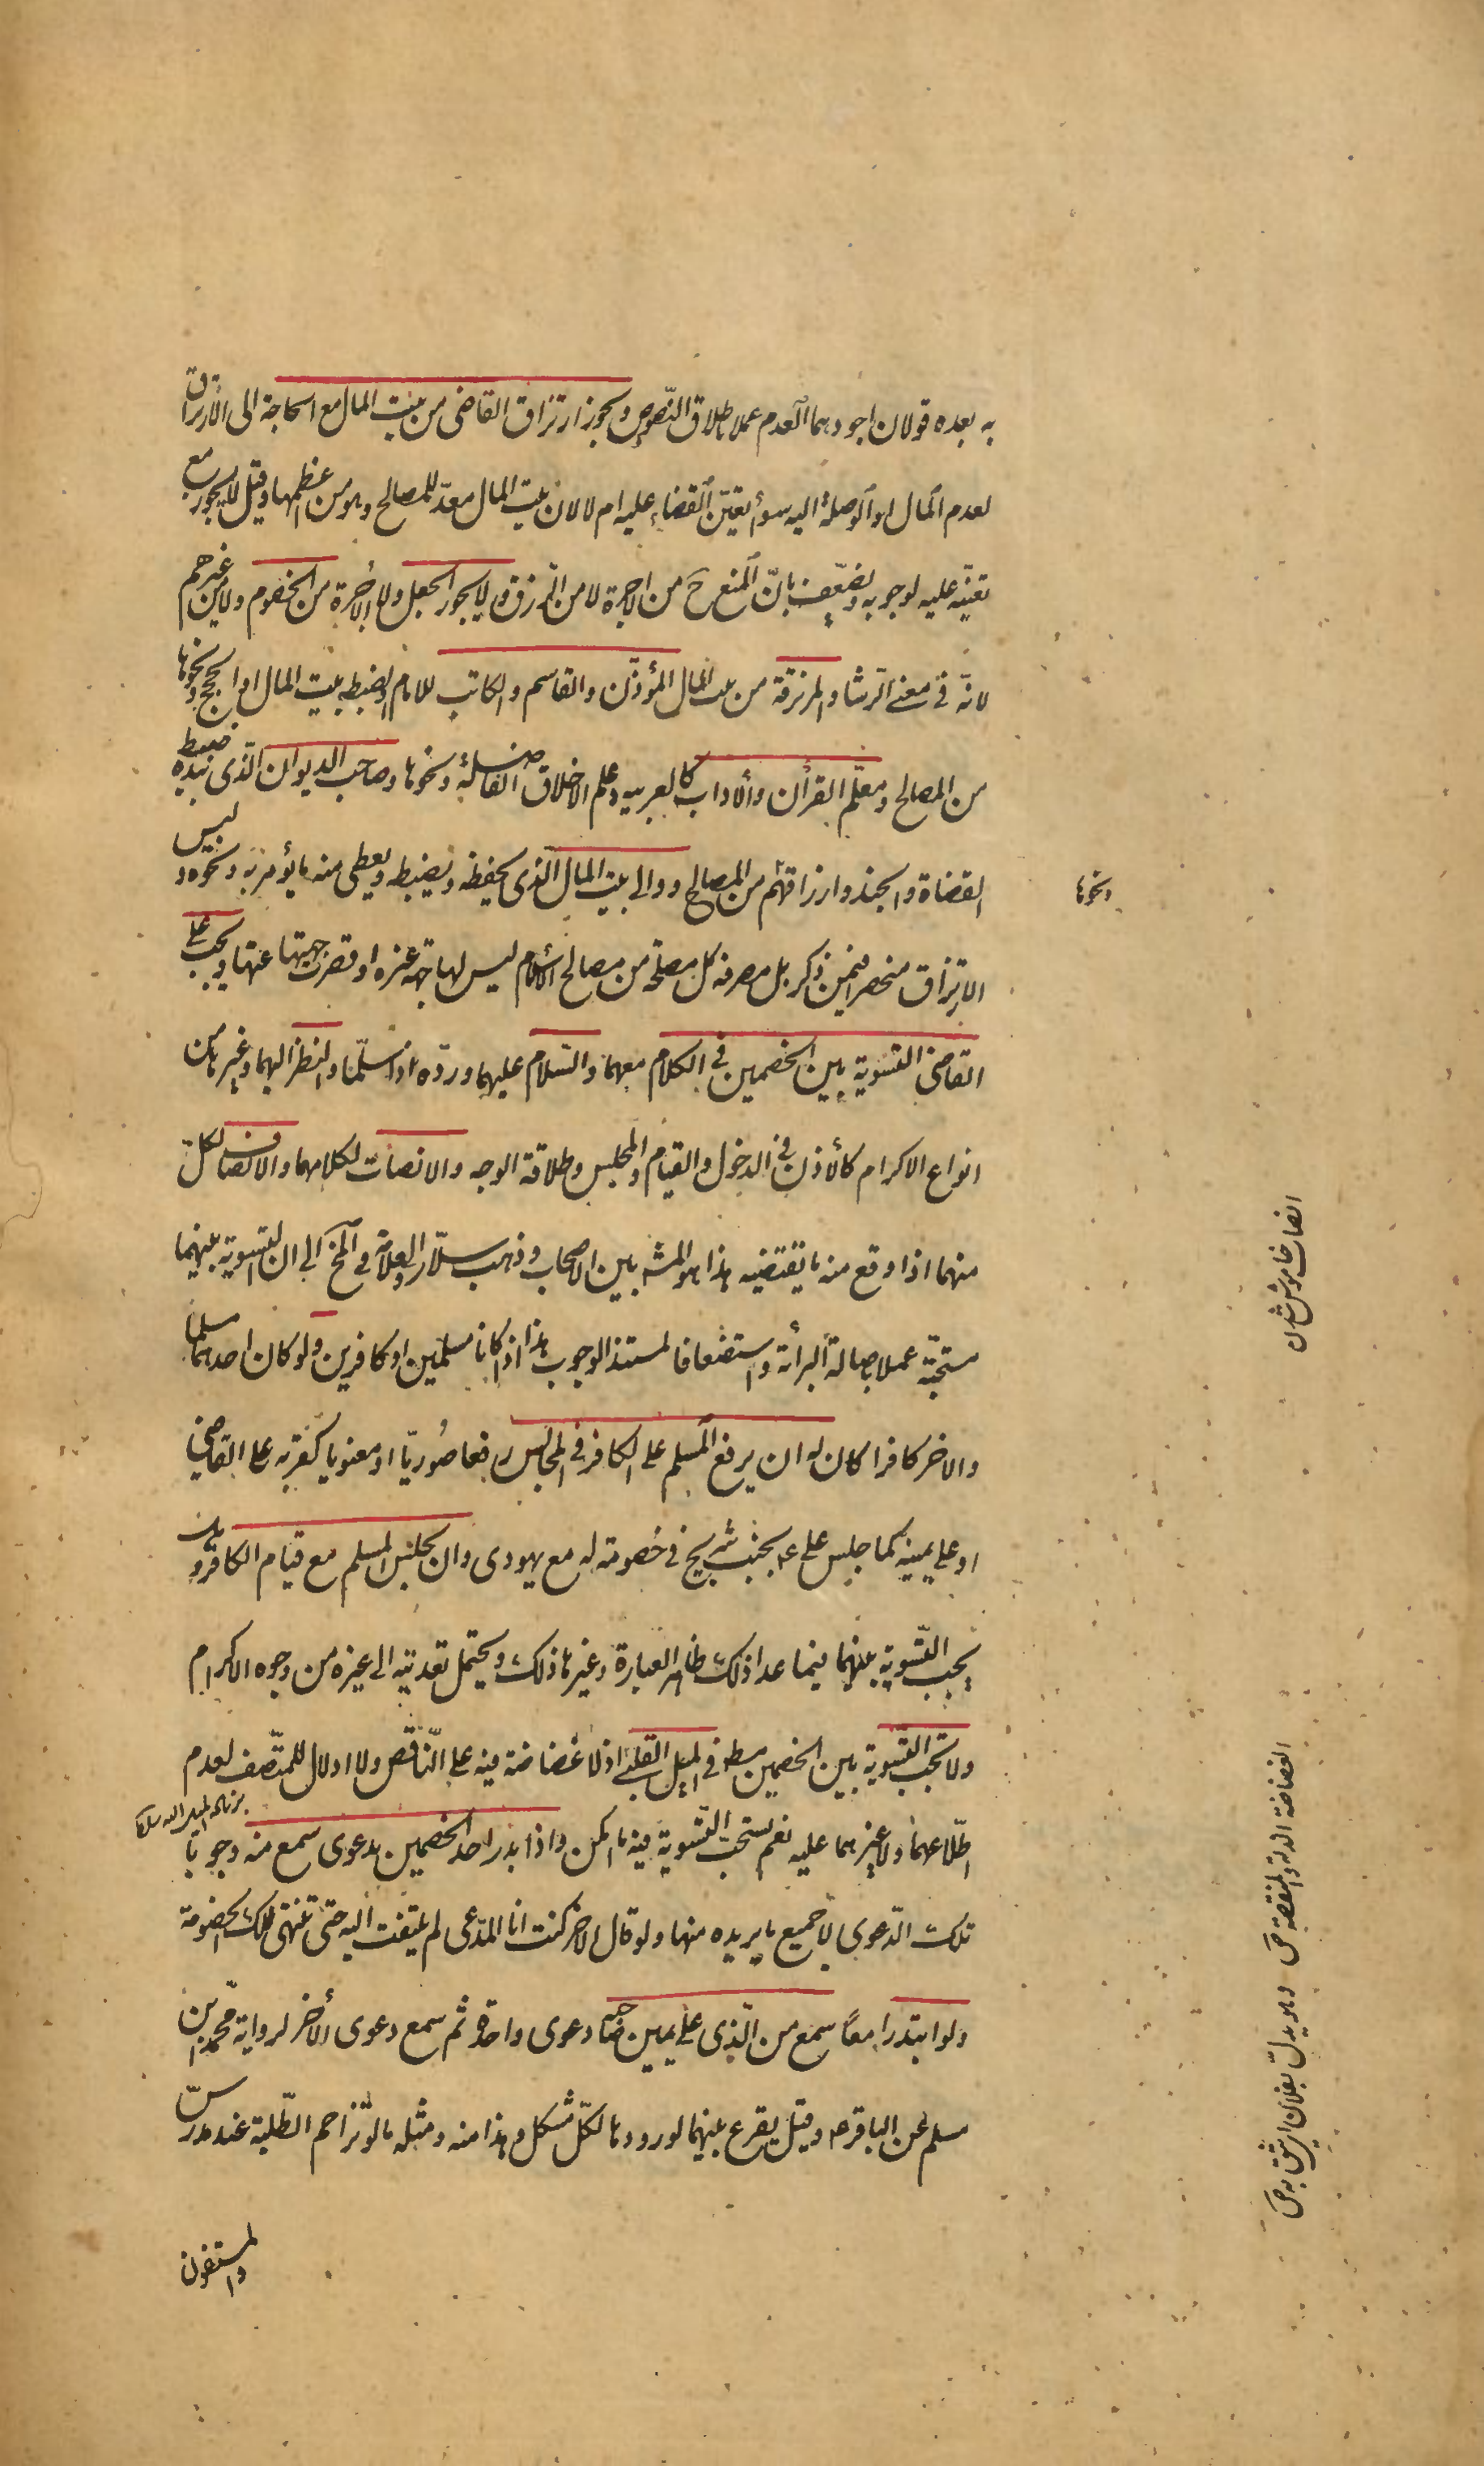 به بعده قولان اجودهما العدم عملا باطلاق النصوص ويجوز ارتزاق القاضى من بيت المال مع الحاجة الى الارتزاق
لعدم المال او الوصلة اليه سواء تعيّن القضاء عليه ام لا لان بيت المال معدّ للمصالح وهو من اعظمها وقيل لا يجوز مع
تعيّنه عليه لوجوبه ويضعّف بانّ المنع ح من الاجرة لا من الرزق ولا يجوز الجعل ولا الاجرة من الخصوم ولا من غيرهم
لانّه فى معنى الرشا والمرتزقة من بيت المال المؤذّن والقاسم والكاتب للامام او لضبط بيت المال او الحجج ونحوها
من المصالح ومعلّم القرآن والآداب كالعربيه وعلم الاخلاق الفاضلة ونحوها وصاحب الديوان الّذى بيده ضبط
القضاة والجند وارزاقهم من المصالح ووالى بيت المال الّذى يحفظه ويضبطه ويعطى منه ما يؤمر به ونحوه وليس
الارتزاق منحصرا فيمن ذكر بل مصرفه كل مصلحة من مصالح الاسلام ليس لها جهة غيره او قصرت جهتها عنها ويجب على
القاضى التسوية بين الخصمين فى الكلام معهما والسّلام عليهما وردّه اذا سلّما والنظر اليهما وغيرها من
انواع الاكرام كالاذن فى الدخول والقيام والمجلس وطلاقة الوجه والانصات لكلامهما والانصاف لكلّ
منهما اذا وقع منه ما يقتضيه هذا هو المشه بين الاصحاب وذهب سلّار والعلامة فى المخ الى ان التسوية بينهما
مستحبّة عملا باصالة البرأة واستضعافا لمستند الوجوب هذا اذا كانا مسلمين او كافرين ولو كان احدهما مسلما
والاخر كافرا كان له ان يرفع المسلم على الكافر فى المجلس رفعا صُوريّا او معنويا كقربه الى القاضى
او على يمينه كما جلس على ع بجنب شريح فى خصومة له مع يهودى وان يجلس المسلم مع قيام الكافر وهل
يجب التّسوية بينهما فيما عدا ذلك ظاهر العبارة وغيرها ذلك ويحتمل تعديته الى غيره من وجوه الاكرام
ولا تجب التّسوية بين الخصمين مطـ فى الميل القلبىّ اذ لا غضاضة فيه على النّاقص ولا ادلال للمتّصف لعدم
اطّلاعهما ولا غيرهما عليه نعم تستحبّ التّسوية فيه ما امكن واذا بدر احد الخصمين بدعوى سمع منه وجوبا
تلك الدّعوى لا جميع ما يريده منها ولو قال الاخر كنت انا المدّعى لم يلتفت اليه حتى تنتهى تلك الخصومة
ولو ابتدرا معًا سمع من الّذى على يمين صاحبه دعوى واحدة ثم سمع دعوى الأخر لرواية محمّد بن
مسلم عن الباقر ع وقيل يقرع بينهما لورودها لكلّ مشكل وهذا منه ومثله ما لو تزاحم الطّلبة عند مدرّس
والمستفتون
ونحوها
انصات خاموش شدن
الغضاضة الذلة والمنقصة ص وهو يدلّ بفلان اى يثق به ص